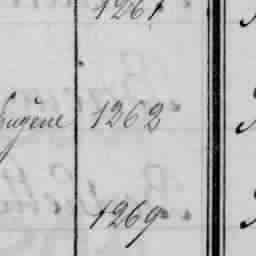 1261
Eugène 1262
1269